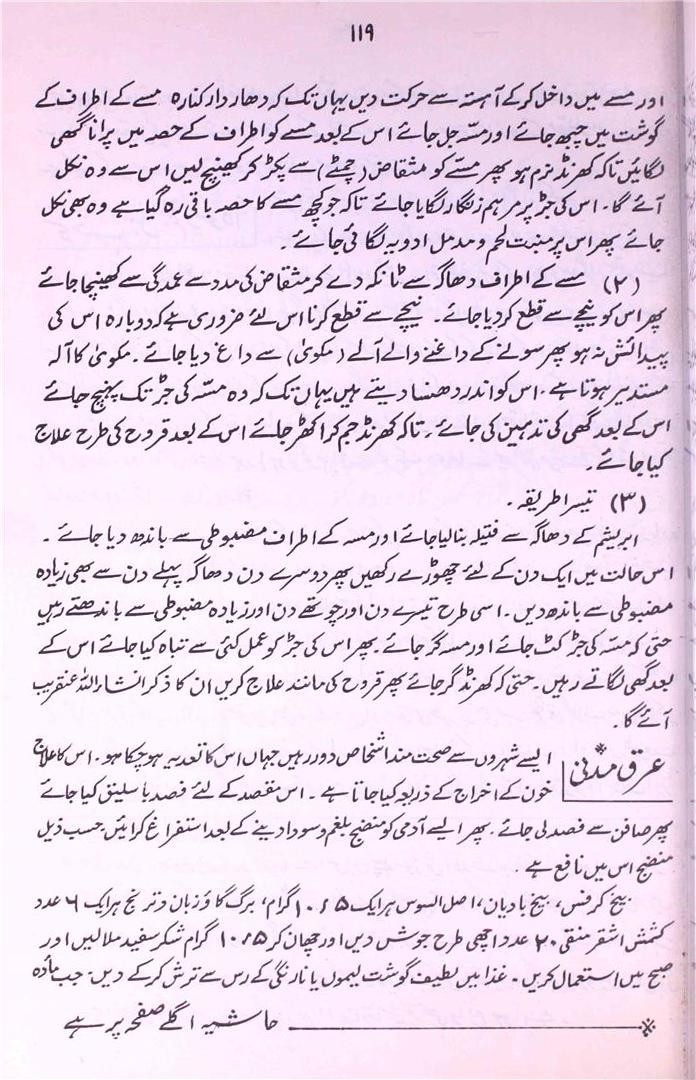 ۱۱۹
اور مسے میں داخل کرکے آہستہ سے حرکت دیں یہاں تک کہ دھاردار کنارہ مسے کے اطراف کے
گوشت میں چبھ جائے اور مسّہ جل جائے اس کے بعد مسے کو اطراف کے حصہ میں پرانا گھی
لگائیں تاکہ کھرنڈ نرم ہو پھر مسّے کو مثقاض (چمٹے) سے پکڑ کر کھینچ لیں اس سے وہ نکل
آئے گا۔ اس کی جڑ پر مرہم زنگار لگایا جائے تاکہ جو کچھ مسے کا حصہ باقی رہ گیا ہے وہ بھی نکل
جائے پھر اس پر منبت لحم و مدمل ادویہ لگائی جائے۔
(۲) مسے کے اطراف دھاگہ سے ٹانکہ دے کر مثقاض کی مدد سے عمدگی سے کھینچا جائے
پھر اس کو نیچے سے قطع کردیا جائے۔ نیچے سے قطع کرنا اس لئے ضروری ہے کہ دوبارہ اس کی
پیدائش نہ ہو پھر سونے کے داغنے والے آلے (مکویٰ) سے داغ دیا جائے۔ مکویٰ کا آلہ
مستدیر ہوتا ہے۔ اس کو اندر دھنسا دیتے ہیں یہاں تک کہ وہ مسّہ کی جڑ تک پہنچ جائے
اس کے بعد گھی کی تدہین کی جائے۔ تاکہ کھرنڈ جم کر اکھڑ جائے اس کے بعد قروح کی طرح علاج
کیا جائے۔
(۳) تیسرا طریقہ۔
ابریشم کے دھاگہ سے فتیلہ بنا لیا جائے اور مسہ کے اطراف مضبوطی سے باندھ دیا جائے۔
اس حالت میں ایک دن کے لئے چھوڑے رکھیں پھر دوسرے دن دھاگہ پہلے دن سے بھی زیادہ
مضبوطی سے باندھ دیں۔ اسی طرح تیسرے دن اور چوتھے دن اور زیادہ مضبوطی سے باندھتے رہیں
حتیٰ کہ مسّہ کی جڑ کٹ جائے اور مسہ گر جائے۔ پھر اس کی جڑ کو عمل کئی سے تباہ کیا جائے اس کے
بعد گھی لگاتے رہیں۔ حتیٰ کہ کھرنڈ گر جائے پھر قروح کی مانند علاج کریں ان کا ذکر انشاء اللہ عنقریب
آئے گا۔
عرق مدنی* ایسے شہروں سے صحت مند اشخاص دور رہیں جہاں اس کا تعدیہ ہوچکا ہو۔ اس کا علاج
خون کے اخراج کے ذریعہ کیا جاتا ہے۔ اس مقصد کے لئے فصد باسلیق کیا جائے
پھر صافن سے فصد لی جائے۔ پھر ایسے آدمی کو منضج بلغم و سودا دینے کے بعد استفراغ کرائیں۔ حسب ذیل
منضج اس میں نافع ہے۔
بیخ کرفس، بیخ بادیان، اصل السوس ہر ایک ۱۰/۵ گرام، برگ گاؤ زبان و ترنج ہر ایک ۶ عدد
کشمش اشقر منقی ۲۰ عدد اچھی طرح جوش دیں اور چھان کر ۱۰/۵ گرام شکر سفید ملالیں اور
صبح میں استعمال کریں۔ غذا میں لطیف گوشت لیموں یا نارنگی کے رس سے ترش کرکے دیں۔ جب مادّہ
* حاشیہ اگلے صفحہ پر ہے